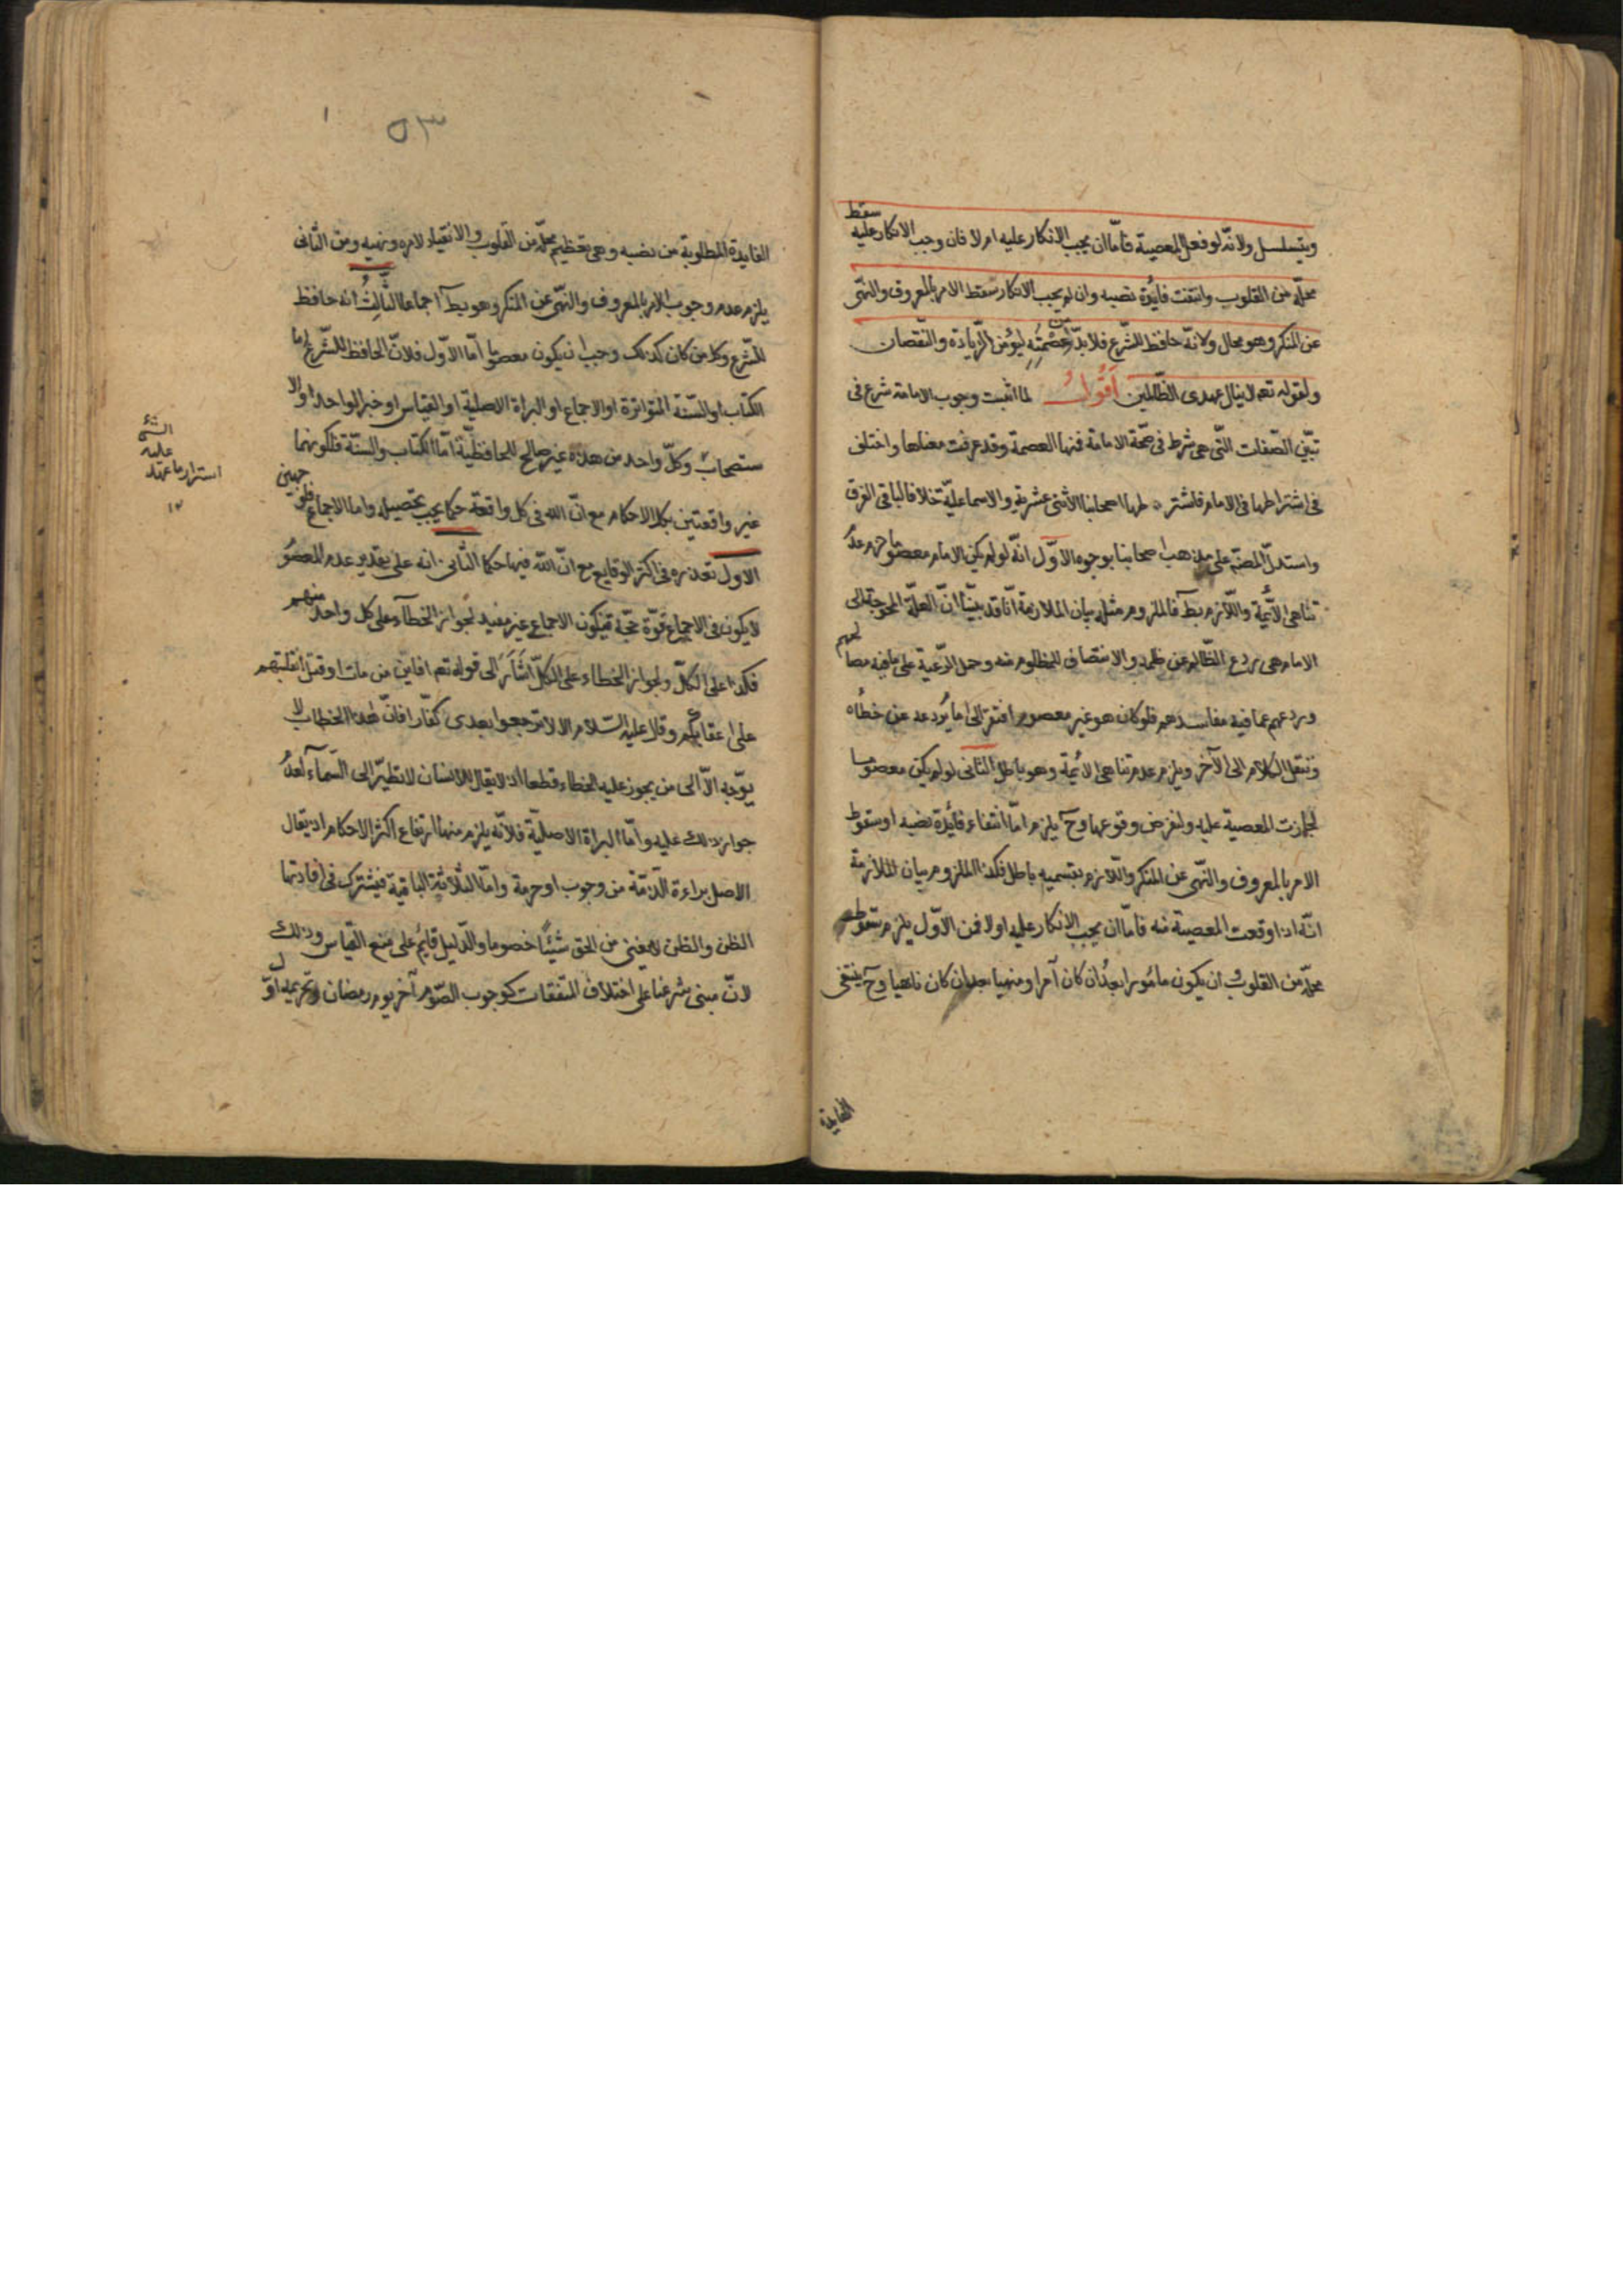 ويتسلسل ولانه لو فعل المعصية فامّا ان يجب الانكار عليه ام لا فان وجب الانكار عليه سقط
محلّه من القلوب وانتفت فايدة نصبه وان لم يجب الانكار سقط الامر بالمعروف والنهى
عن المنكر وهو محال ولانّه حافظ للشّرع فلا بدّ من عصمته ليؤمن الزّيادة والنقصان
ولقوله تعه لا ينال عهدى الظّالمين اقُولُ لما اثبت وجوب الامامة شرع فى
تبيّن الصّفات التّى هى شرط فى صحّة الامامة فمنها العصمة وقد عرفت معناها واختلف
فى اشتراطها فى الامام فاشتر طها اصحابنا الاثنى عشرية والاسماعليّة خلافا لباقى الفرق
واستدلّ المصنّم على مذهب اصحابنا بوجوه الاوّل انّه لو لم يكن الامام معصوما لزم عدم
تناهى الائمّة واللّازم بط فالملزوم مثله بيان الملازمة انّا قد بيّنّا انّ العلّة المحوجة الى
الامام هى ردع الظّالم عن ظلمه والانتصاف للمظلوم منه وحمل الرّعية على ما فيه مصالحهم
وردعهم عما فيه مفاسدهم فلو كان هو غير معصوم افتقر الى امام يردعه عن خطأه
وننقل الكلام الى الآخر ويلزم عدم تناهى الائمة وهو باطل الثانى لو لم يكن معصوما
لجازت المعصية عليه ولنفرض وقوعها وح يلزم امّا انتفاء فائدة نصبه او سقوط
الامر بالمعروف والنّهى عن المنكر واللّازم بقسميه باطل فكذا الملزوم بيان الملازمة
انّه اذا وقعت المعصية منه فامّا ان يجب الانكار عليه اولا فمن الاوّل يلزم سقوط
محلّه من القلوب وان يكون مامورا بعد ان كان آمرا ومنهيا بعد ان كان ناهيا وح ينتفى
الفايدة
٥٣
الفايدة المطلوبة من نصبه وهى تعظيم محلّه من القلوب والانقياد لامره ونهيه ومن الثّانى
يلزم عدم وجوب الامر بالمعروف والنّهى عن المنكر وهو بط اجماعا الثّالثُ انه حافظ
للشّرع وكل من كان كذلك وجب ان يكون معصوما امّا الاوّل فلانّ الحافظ للشّرع اما
الكتاب او السّنة المتواترة او الاجماع او البراة الاصلية او القياس او خبر الواحد او الا
ستصحاب وكلّ واحد من هذه غير صالح للحافظيّة امّا الكتاب والسنّة فلكونهما
غير واقعتين بكل الاحكام مع انّ الله فى كل واقعة حكما يجب تحصيله واما الاجماع فلوجهين
الاول تعذره فى اكثر الوقايع مع انّ الله فيها حكما الثانى انه على تقدير عدم المعصوم
لا يكون فى الاجماع قوّة حجّة فيكون الاجماع غير مفيد لجواز الخطآء على كل واحد منهم
فكذا على الكلّ ولجواز الخطاء على الكلّ اشار الى قوله تعه افاين من مات او قتل انقلبتهم
على اعقابكم وقال عليه السّلام الا لا ترجعوا بعدى كفّارا فانّ هذا الخطاب لا
يوجّه الّا الى من يجوز عليه الخطاء قطعا اذ لا يقال للانسان لا تطير الى السّماء لعدم
جواز ذلك عليه وامّا البراة الاصلية فلانّه يلزم منها ارتفاع اكثر الاحكام اذ يقال
الاصل براءة الذّمّة من وجوب او حرمة وامّا الثّلاثة الباقية فيشترك فى افادتها
الظن والظن لا يغنى من الحق شيئا خصوصا والدّليل قايم على منع القياس وذلك
لانّ مبنى شرعنا على اختلاف المتفقات كوجوب الصّوم آخر يوم رمضان وتحريمه اوّل
الشئ
عليه